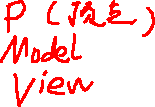 P (顶点)
Model
View